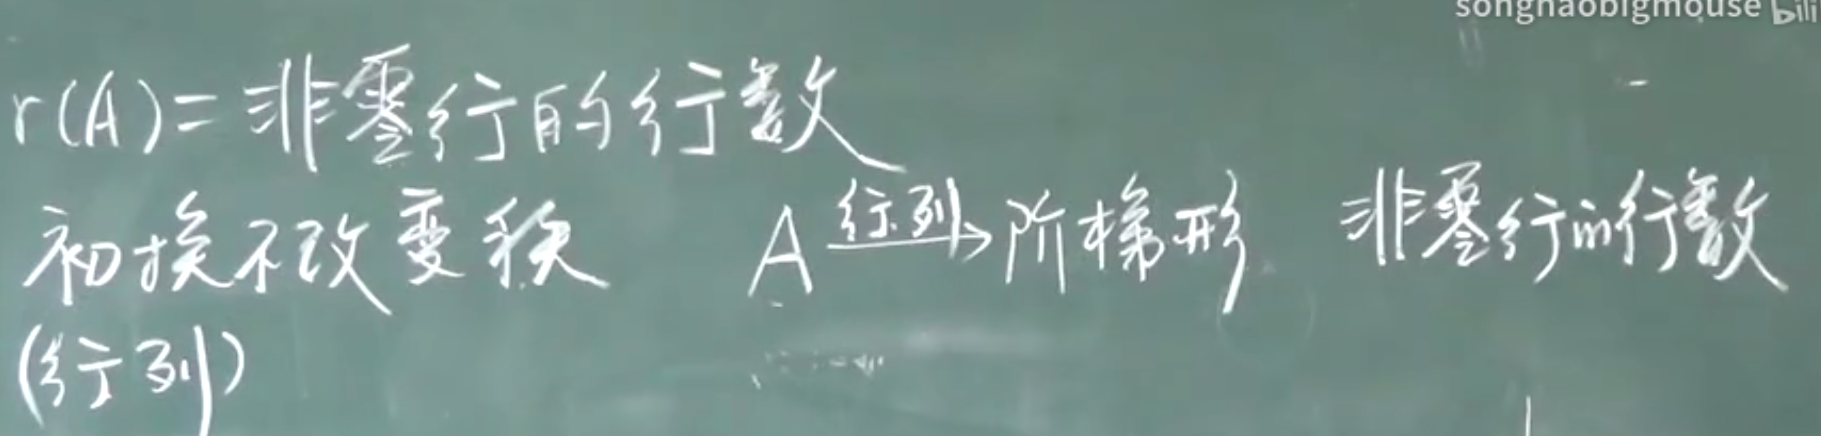 songhaobigmouse bili
r(A)=非零行的行数
初换不改变秩 A 行.列→ 阶梯形 非零行的行数
(行列)